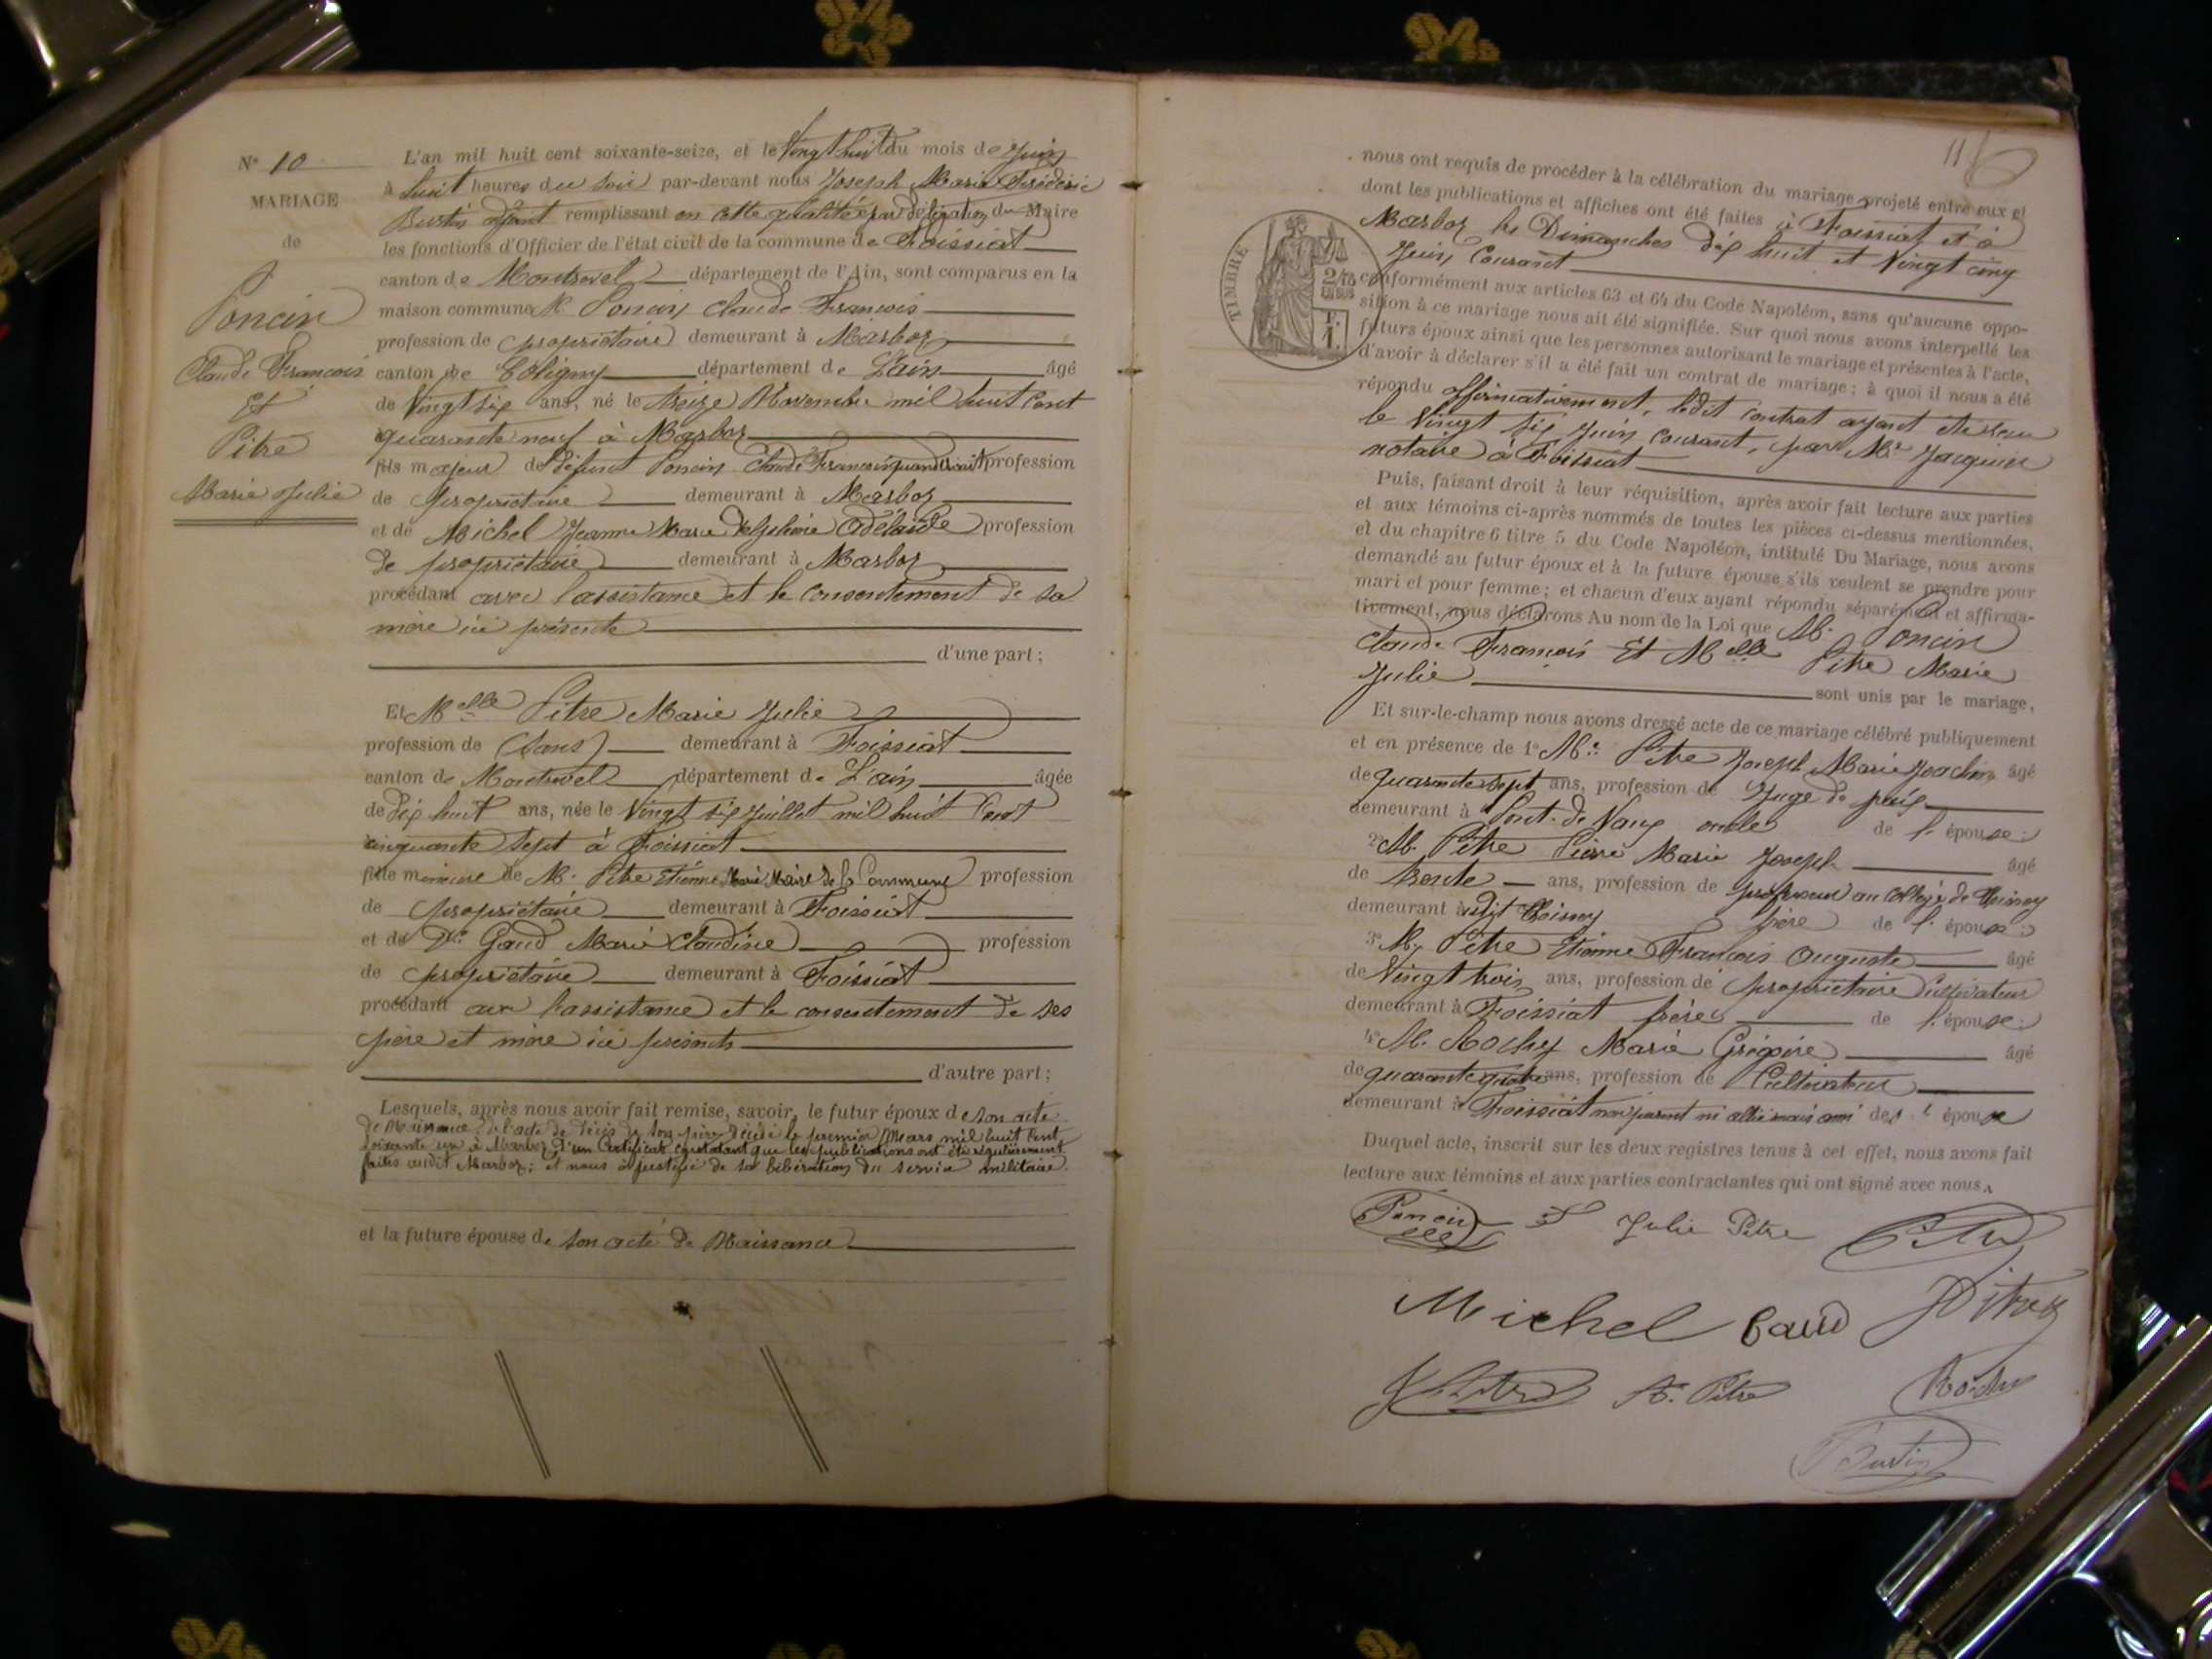 N° 10
MARIAGE
de
Poncin
Claude François
Et
Pitre
Marie Julie
L'an mil huit cent soixante-seize, et le Vingt huit du mois de Juin
à huit heures du soir par-devant nous Joseph Marie Fréderic
Burtin adjoint remplissant en cette qualité & par délégation du Maire
les fonctions d'Officier de l'état civil de la commune de Foissiat
canton de Montrevel département de l'Ain, sont comparus en la
maison commune M. Poncin Claude François
profession de propriétaire demeurant à Marboz
canton de Coligny département de L'ain âgé
de Vingt six ans, né le treize Novembre mil huit Cent
quarante neuf à Marboz
fils majeur de défunt Poncin Claude François quand vivait profession
de propriétaire demeurant à Marboz
et de Michel Jeanne Marie Delphine Adélaïde profession
de propriétaire demeurant à Marboz
procédant avec l'assistance et le consentement de sa
mère ici présente
d'une part;
Et Melle Pitre Marie Julie
profession de (sans) demeurant à Foissiat
canton de Montrevel département de L'ain âgée
de dix huit ans, née le Vingt six Juillet mil huit Cent
cinquante sept à Foissiat
fille mineure de M. Pitre Etienne Marie Maire de la Commune profession
de propriétaire demeurant à Foissiat
et de De Gaud Marie Claudine profession
de propriétaire demeurant à Foissiat
procédant avec l'assistance et le consentement de ses
père et mère ici présents
d'autre part;
Lesquels, après nous avoir fait remise, savoir, le futur époux de son acte
de Naissance, de l'acte de décès de son père décédé le premier Mars mil huit Cent
soixante un à Marboz, d'un Certificat constatant que les publications ont été régulièrement
faites audit Marboz; et nous a justifié de sa libération du service militaire.
et la future épouse de son acte de Naissance
116
TIMBRE
2/10
EN SUS
1 F.
nous ont requis de procéder à la célébration du mariage projeté entre eux et
dont les publications et affiches ont été faites à Foissiat et à
Marboz les Dimanches dix huit et Vingt cinq
Juin Courant
conformément aux articles 63 et 64 du Code Napoléon, sans qu'aucune oppo-
sition à ce mariage nous ait été signifiée. Sur quoi nous avons interpellé les
futurs époux ainsi que les personnes autorisant le mariage et présentes à l'acte,
d'avoir à déclarer s'il a été fait un contrat de mariage; à quoi il nous a été
répondu affirmativement, ledit Contrat ayant été reçu
le Vingt six Juin Courant, par Me Jacquin
notaire à Foissiat
Puis, faisant droit à leur réquisition, après avoir fait lecture aux parties
et aux témoins ci-après nommés de toutes les pièces ci-dessus mentionnées,
et du chapitre 6 titre 5 du Code Napoléon, intitulé Du Mariage, nous avons
demandé au futur époux et à la future épouse s'ils veulent se prendre pour
mari et pour femme; et chacun d'eux ayant répondu séparément et affirma-
tivement, nous déclarons Au nom de la Loi que M. Poncin
Claude François Et Melle Pitre Marie
Julie sont unis par le mariage.
Et sur-le-champ nous avons dressé acte de ce mariage célébré publiquement
et en présence de 1° M. Pitre Joseph Marie Joachim âgé
de quarante sept ans, profession de Juge de paix
demeurant à Pont-de-Vaux oncle de l'épouse;
2° M. Pitre Pierre Marie Joseph âgé
de trente ans, profession de professeur au Collège de Thoissey
demeurant à dit Thoissey frère de l'épouse;
3° M. Pitre Etienne François Auguste âgé
de Vingt trois ans, profession de propriétaire Cultivateur
demeurant à Foissiat frère de l'épouse;
4° M. Rochy Marie Grégoire âgé
de quarante quatre ans, profession de Cultivateur
demeurant à Foissiat non parent ni allié mais ami de l'épouse
Duquel acte, inscrit sur les deux registres tenus à cet effet, nous avons fait
lecture aux témoins et aux parties contractantes qui ont signé avec nous.
Poncin Julie Pitre Pitre
Michel Gaud Pitre
J. Pitre A. Pitre Rochy
Burtin